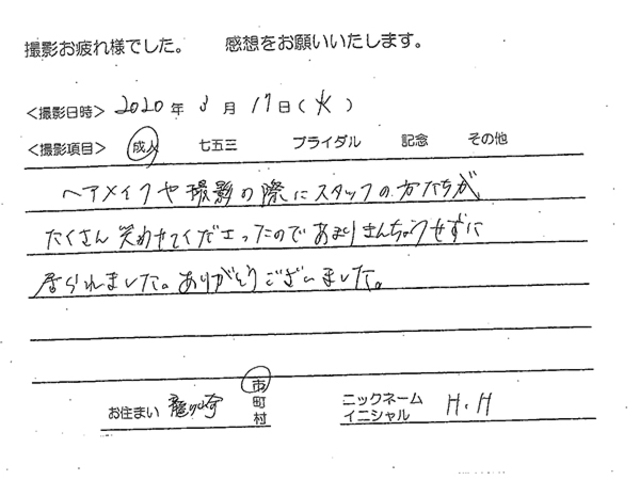 撮影お疲れ様でした。 感想をお願いいたします。
<撮影日時> 2020 年 3 月 17日(火)
<撮影項目> 成人 七五三 ブライダル 記念 その他
ヘアメイクや撮影の際にスタッフの方たちが
たくさん笑わせてくださったのであまりきんちょうせずに
居られました。ありがとうございました。
お住まい 龍ヶ崎 市町村
ニックネーム
イニシャル H.H